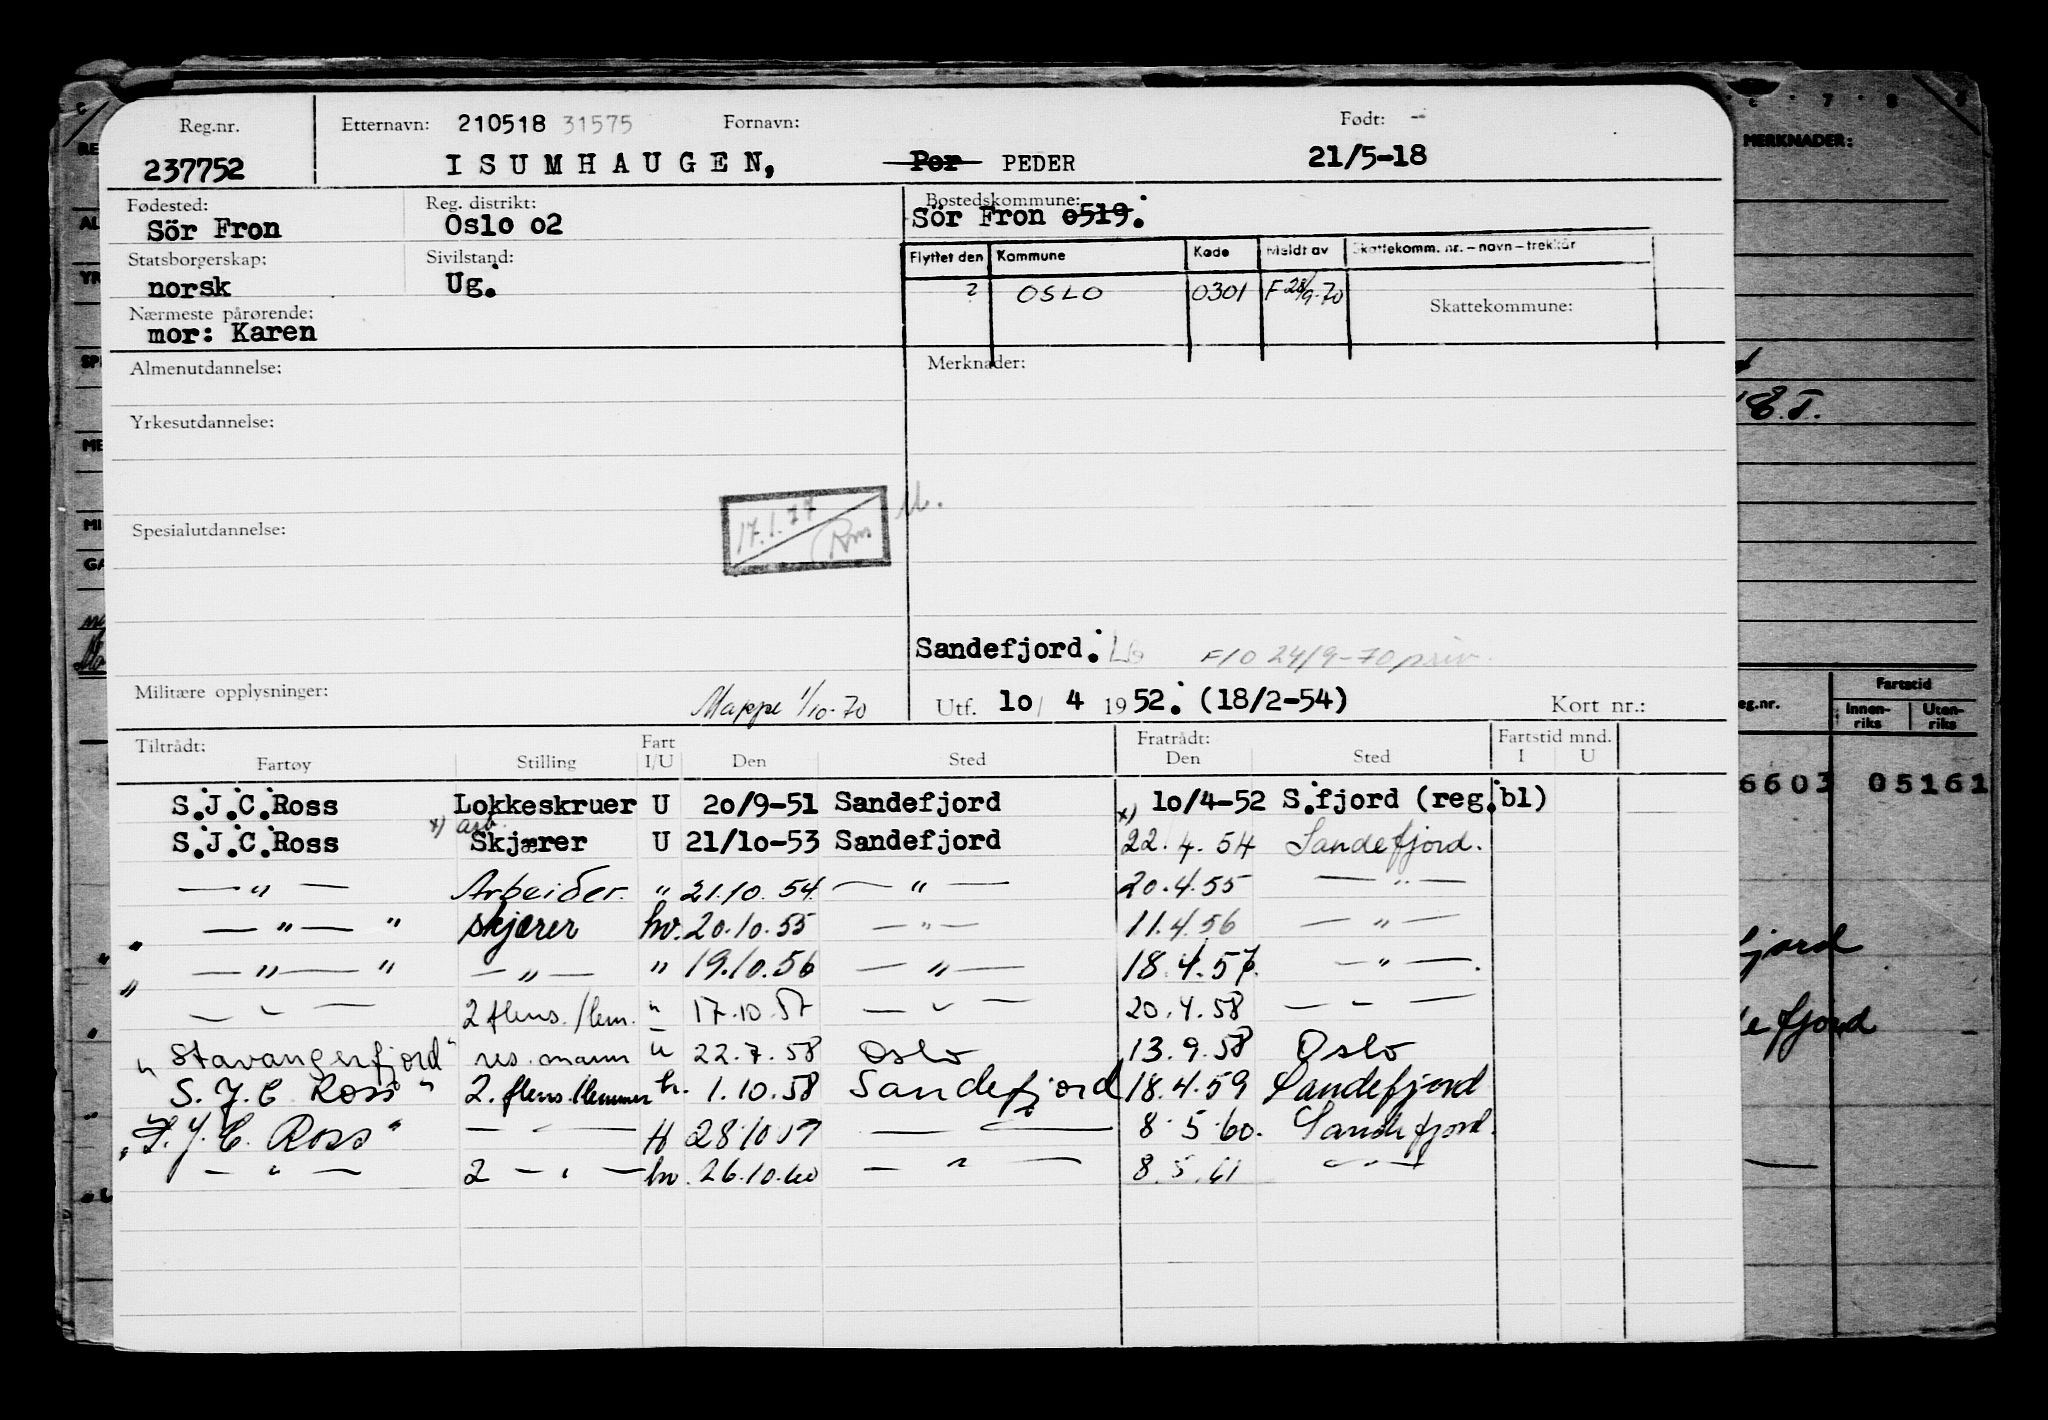 Reg.nr. Etternavn: 210518 31575 Fornavn: Født:
237752 ISUMHAUGEN, Per PEDER 21/5-18
Fødested: Reg. distrikt: Bostedskommune:
Sör Fron Oslo o2 Sör Fron o519.
Statsborgerskap: Sivilstand: Flyttet den Kommune Kode Meldt av Skattekomm. nr. – navn – trekkår
norsk Ug. ? OSLO 0301 F 28/9-70
Nærmeste pårørende: Skattekommune:
mor: Karen
Almenutdannelse: Merknader:
Yrkesutdannelse:
17.1.77
Spesialutdannelse:
Sandefjord. F/O 24/9-70 priv.
Militære opplysninger: Mappe 1/10-70 Utf. 1o/ 4 1952. (18/2-54) Kort nr.:
Tiltrådt: Fart Fratrådt: Fartstid mnd.
Fartøy Stilling I/U Den Sted Den Sted I U
S.J.C.Ross Lokkeskruer U 2o/9-51 Sandefjord x) 1o/4-52 S.fjord (reg.bl)
x) arb.
S.J.C.Ross Skjærer U 21/1o-53 Sandefjord 22.4.54 Sandefjord.
— " — Arbeider. " 21.10.54. — " — 20.4.55 — " —
" — " — " skjærer hv. 20.10.55 — " — 11.4.56 — " —
" — " — " — " — " 19.10.56 — " — 18.4.57. — " —.
— " — 2 flens./lem. " 17.10.57 — " — 20.4.58 — " —
" Stavangerfjord" res. mann u 22.7.58 Oslo 13.9.58 Oslo
S.J.C Ross " 2. flens./lemmer h. 1.10.58 Sandefjord 18.4.59 Sandefjord
"S.J.C. Ross" — " — H 28.10.59 — " — 8.5.60. Sandefjord.
— " — 2 — " — hv. 26.10.60 — " — 8.5.61 — " —
MERKNADER:
E.T.
eg.nr. Fartstid
Innen-riks Uten-riks
6603 05161
fjord
efjord